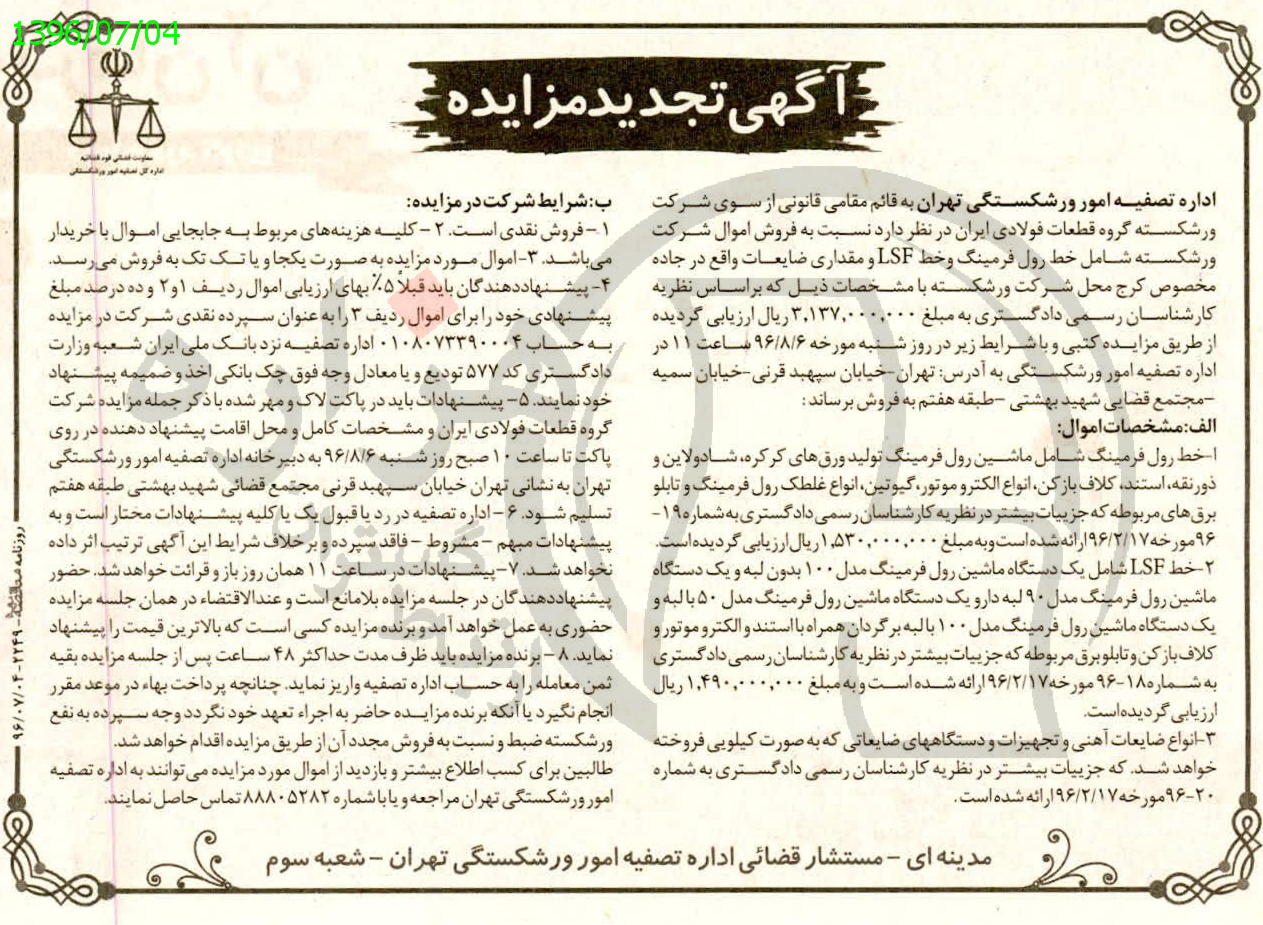 1396/07/04
معاونت قضائی قوه قضائیه
اداره کل تصفیه امور ورشکستگی
آگهی تجدید مزایده
اداره تصفیه امور ورشکستگی تهران به قائم مقامی قانونی از سوی شرکت
ورشکسته گروه قطعات فولادی ایران در نظر دارد نسبت به فروش اموال شرکت
ورشکسته شامل خط رول فرمینگ وخط LSF و مقداری ضایعات واقع در جاده
مخصوص کرج محل شرکت ورشکسته با مشخصات ذیل که براساس نظریه
کارشناسان رسمی دادگستری به مبلغ ۳,۱۳۷,۰۰۰,۰۰۰ ریال ارزیابی گردیده
از طریق مزایده کتبی و با شرایط زیر در روز شنبه مورخه ۹۶/۸/۶ ساعت ۱۱ در
اداره تصفیه امور ورشکستگی به آدرس: تهران-خیابان سپهبد قرنی-خیابان سمیه
-مجتمع قضایی شهید بهشتی -طبقه هفتم به فروش برساند:
الف:مشخصات اموال:
۱-خط رول فرمینگ شامل ماشین رول فرمینگ تولید ورق‌های کرکره، شادولاین و
ذورنقه، استند، کلاف بازکن، انواع الکترو موتور، گیوتین، انواع غلطک رول فرمینگ و تابلو
برق‌های مربوطه که جزییات بیشتر در نظریه کارشناسان رسمی دادگستری به شماره ۱۹-
۹۶ مورخه ۹۶/۲/۱۷ ارائه شده است وبه مبلغ ۱,۵۳۰,۰۰۰,۰۰۰ ریال ارزیابی گردیده است.
۲-خط LSF شامل یک دستگاه ماشین رول فرمینگ مدل ۱۰۰ بدون لبه و یک دستگاه
ماشین رول فرمینگ مدل ۹۰ لبه دار و یک دستگاه ماشین رول فرمینگ مدل ۵۰ با لبه و
یک دستگاه ماشین رول فرمینگ مدل ۱۰۰ با لبه برگردان همراه با استند و الکترو موتور و
کلاف بازکن و تابلو برق مربوطه که جزییات بیشتر در نظریه کارشناسان رسمی دادگستری
به شماره ۱۸-۹۶ مورخه ۹۶/۲/۱۷ ارائه شده است و به مبلغ ۱,۴۹۰,۰۰۰,۰۰۰ ریال
ارزیابی گردیده است.
۳-انواع ضایعات آهنی و تجهیزات و دستگاههای ضایعاتی که به صورت کیلویی فروخته
خواهد شد. که جزییات بیشتر در نظریه کارشناسان رسمی دادگستری به شماره
۲۰-۹۶ مورخه ۹۶/۲/۱۷ ارائه شده است.
ب:شرایط شرکت در مزایده:
۱-فروش نقدی است. ۲- کلیه هزینه‌های مربوط به جابجایی اموال با خریدار
می‌باشد. ۳-اموال مورد مزایده به صورت یکجا و یا تک تک به فروش می‌رسد.
۴- پیشنهاددهندگان باید قبلاً ۵٪ بهای ارزیابی اموال ردیف ۱و۲ و ده درصد مبلغ
پیشنهادی خود را برای اموال ردیف ۳ را به عنوان سپرده نقدی شرکت در مزایده
به حساب ۰۱۰۸۰۷۳۳۹۰۰۰۴ اداره تصفیه نزد بانک ملی ایران شعبه وزارت
دادگستری کد ۵۷۷ تودیع و یا معادل وجه فوق چک بانکی اخذ و ضمیمه پیشنهاد
خود نمایند. ۵- پیشنهادات باید در پاکت لاک و مهر شده با ذکر جمله مزایده شرکت
گروه قطعات فولادی ایران و مشخصات کامل و محل اقامت پیشنهاد دهنده در روی
پاکت تا ساعت ۱۰ صبح روز شنبه ۹۶/۸/۶ به دبیرخانه اداره تصفیه امور ورشکستگی
تهران به نشانی تهران خیابان سپهبد قرنی مجتمع قضائی شهید بهشتی طبقه هفتم
تسلیم شود. ۶- اداره تصفیه در رد یا قبول یک یا کلیه پیشنهادات مختار است و به
پیشنهادات مبهم - مشروط - فاقد سپرده و برخلاف شرایط این آگهی ترتیب اثر داده
نخواهد شد. ۷-پیشنهادات در ساعت ۱۱ همان روز باز و قرائت خواهد شد. حضور
پیشنهاددهندگان در جلسه مزایده بلامانع است و عندالاقتضاء در همان جلسه مزایده
حضوری به عمل خواهد آمد و برنده مزایده کسی است که بالاترین قیمت را پیشنهاد
نماید. ۸ - برنده مزایده باید ظرف مدت حداکثر ۴۸ ساعت پس از جلسه مزایده بقیه
ثمن معامله را به حساب اداره تصفیه واریز نماید. چنانچه پرداخت بهاء در موعد مقرر
انجام نگیرد یا آنکه برنده مزایده حاضر به اجراء تعهد خود نگردد وجه سپرده به نفع
ورشکسته ضبط و نسبت به فروش مجدد آن از طریق مزایده اقدام خواهد شد.
طالبین برای کسب اطلاع بیشتر و بازدید از اموال مورد مزایده می‌توانند به اداره تصفیه
امور ورشکستگی تهران مراجعه و یا با شماره ۸۸۸۰۵۲۸۲ تماس حاصل نمایند.
مدینه ای - مستشار قضائی اداره تصفیه امور ورشکستگی تهران - شعبه سوم
روزنامه مناقصه - ۲۲۴۹ - ۹۶/۰۷/۰۴